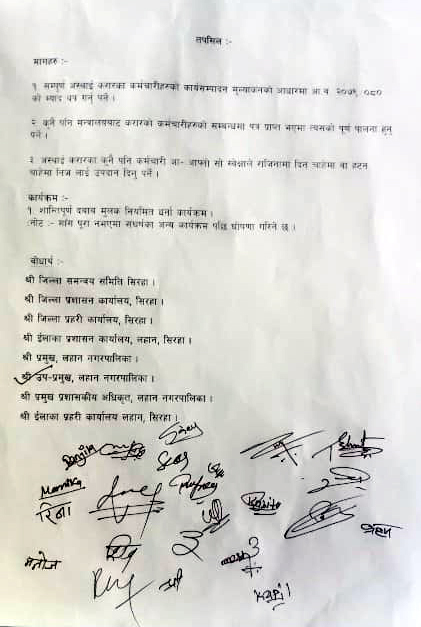 तपसिल :-
मागहरु :-
१. सम्पूर्ण अस्थाई करारका कर्मचारीहरुको कार्यसम्पादन मुल्याकनको आधारमा आ.व. २०७९/०८०
को म्याद थप गर्नु पर्ने ।
२. कुनै पनि मन्त्रालयबाट करारको कर्मचारीहरुको सम्बन्धमा पत्र प्राप्त भएमा त्यसको पूर्ण पालना हुनु
पर्ने ।
३. अस्थाई करारका कुनै पनि कर्मचारी आ- आफ्नो सो स्वेक्षाले राजिनामा दिन चाहेमा वा हटन
चाहेमा निज लाई उपदान दिनु पर्ने ।
कार्यक्रम :-
१. शान्तिपूर्ण दवाव मुलक नियमित धर्ना कार्यक्रम ।
नोट :- माँग पूरा नभएमा संघर्षका अन्य कार्यक्रम पछि घोषणा गरिने छ ।
बोधार्थ :-
श्री जिल्ला समन्वय समिति सिरहा ।
श्री जिल्ला प्रशासन कार्यालय, सिरहा ।
श्री जिल्ला प्रहरी कार्यालय, सिरहा ।
श्री ईलाका प्रशासन कार्यालय, लहान, सिरहा ।
श्री प्रमुख, लहान नगरपालिका ।
श्री उप-प्रमुख, लहान नगरपालिका ।
श्री प्रमुख प्रशासकीय अधिकृत, लहान नगरपालिका ।
श्री ईलाका प्रहरी कार्यालय लहान, सिरहा ।
Manika
रिना
मनोज